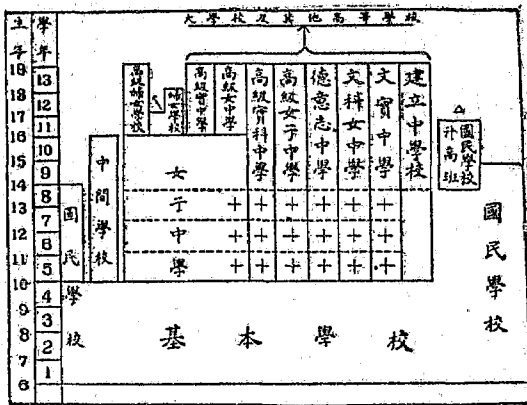 大學校及其他高等學校
生年
學年
19
18
17
16
15
14
13
12
11
10
9
8
7
6
13
12
11
10
9
8
7
6
5
4
3
2
1
高級婦女學校
婦女學校
高級實中學
高級女中學
高級實科中學
高級女子中學
德意志中學
文科女中學
文實中學
建立中學校
國民學校
升高班
中間學校
女子中學
+ + + + + + +
+ + + + + + +
+ + + + + + +
國民學校
國民學校
基本學校